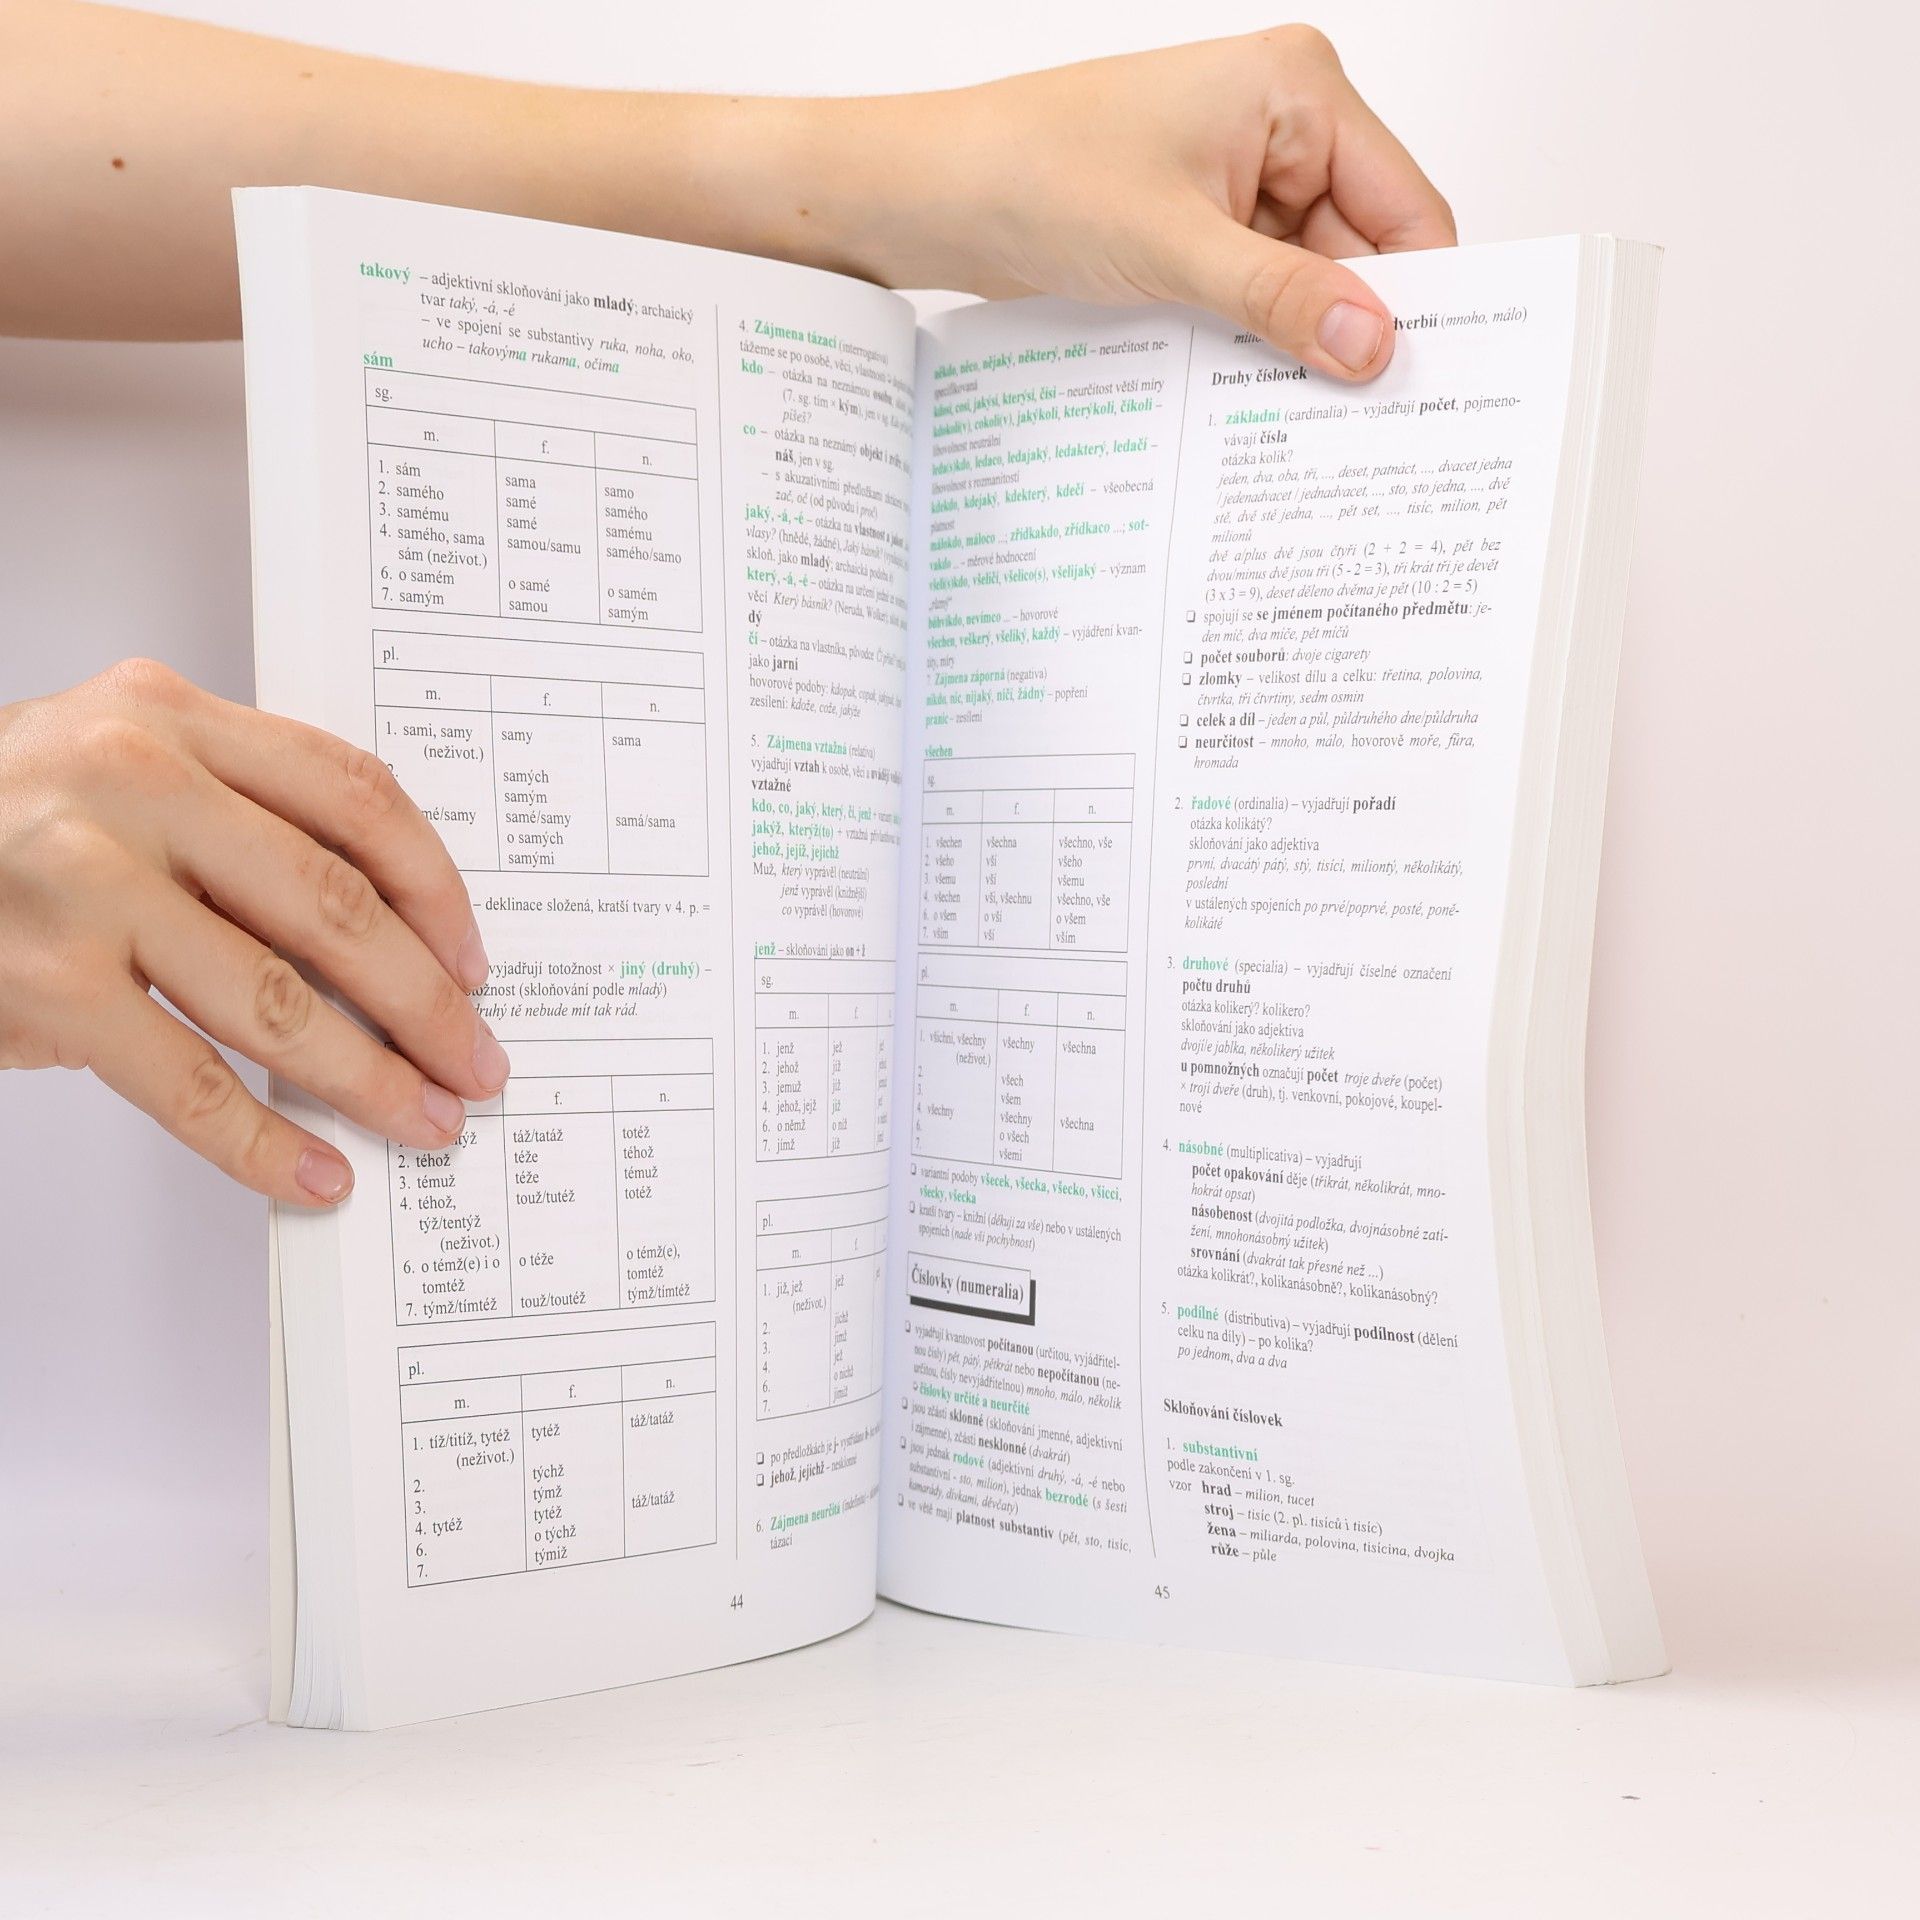 takový – adjektivní skloňování jako mladý; archaický
tvar taký, -á, -é
– ve spojení se substantivy ruka, noha, oko,
ucho – takovýma rukama, očima
sám
sg.
m. f. n.
1. sám sama samo
2. samého samé samého
3. samému samé samému
4. samého, sama samou/samu samého/samo
sám (neživot.)
6. o samém o samé o samém
7. samým samou samým
pl.
m. f. n.
1. sami, samy samy sama
(neživot.)
samých
samým
samé/samy samá/sama
o samých
samými
– deklinace složená, kratší tvary v 4. p. =
vyjadřují totožnost × jiný (druhý) –
(skloňování podle mladý)
tě nebude mít tak rád.
f. n.
táž/tatáž totéž
2. téhož téže téhož
3. témuž téže témuž
4. téhož, touž/tutéž totéž
týž/tentýž
(neživot.)
6. o témž(e) i o o téže o témž(e),
tomtéž tomtéž
7. týmž/tímtéž touž/toutéž týmž/tímtéž
pl.
m. f. n.
1. tíž/titíž, tytéž tytéž táž/tatáž
(neživot.)
2. týchž
3. týmž
4. tytéž tytéž táž/tatáž
6. o týchž
7. týmiž
44
4. Zájmena tázací (interrogativa)
tážeme se po osobě, věci,
kdo – otázka na neznámou osobu,
(7. sg. tím × kým), jen v sg.
píšeš?
co – otázka na neznámý objekt i
náš, jen v sg.
– s akuzativními předložkami
zač, oč (od původu i proč)
jaký, -á, -é – otázka na vlastnost a
vlasy? (hnědé, žádné), Jaký básník?
skloň. jako mladý; archaická podoba
který, -á, -é – otázka na určení
věcí Který básník? (Neruda,
dý
čí – otázka na vlastníka, původce
jako jarní
hovorové podoby: kdopak, copak,
zesílení: kdože, cože, jakýže
5. Zájmena vztažná (relativa)
vyjadřují vztah k osobě, věci a
vztažné
kdo, co, jaký, který, čí, jenž +
jakýž, kterýž(to) + vztažná
jehož, jejíž, jejichž
Muž, který vyprávěl (neutrální)
jenž vyprávěl (knižnější)
co vyprávěl (hovorové)
jenž – skloňování jako on + ž
sg.
m. f.
1. jenž jež
2. jehož jíž
3. jemuž jíž
4. jehož, jejž již
6. o němž o níž
7. jímž jíž
pl.
m. f.
1. již, jež jež
(neživot.)
2. jichž
3. jimž
4. jež
6. o nichž
7. jimiž
❏ po předložkách je
❏ jehož, jejichž – nesklonné
6. Zájmena neurčitá
tázací
někdo, něco, nějaký, některý, něčí – neurčitost ne-
specifikovaná
kdosi, cosi, jakýsi, kterýsi, čísi – neurčitost větší míry
kdokoli(v), cokoli(v), jakýkoli, kterýkoli, číkoli –
libovolnost neutrální
leda(s)kdo, ledaco, ledajaký, ledakterý, ledačí –
libovolnost s rozmanitostí
kdekdo, kdejaký, kdekterý, kdečí – všeobecná
platnost
málokdo, máloco ...; zřídkakdo, zřídkaco ...; sot-
vakdo ... – měrové hodnocení
všeli(s)kdo, všeličí, všelico(s), všelijaký – význam
„různý“
bůhvíkdo, nevímco ... – hovorové
všechen, veškerý, všeliký, každý – vyjádření kvan-
tity, míry
7. Zájmena záporná (negativa)
nikdo, nic, nijaký, ničí, žádný – popření
pranic – zesílení
všechen
sg.
m. f. n.
1. všechen všechna všechno, vše
2. všeho vší všeho
3. všemu vší všemu
4. všechen vši, všechnu všechno, vše
6. o všem o vší o všem
7. vším vší vším
pl.
m. f. n.
1. všichni, všechny všechny všechna
(neživot.)
2. všech
3. všem
4. všechny všechny všechna
6. o všech
7. všemi
❏ variantní podoby všecek, všecka, všecko, všicci,
všecky, všecka
❏ kratší tvary – knižní (děkuji za vše) nebo v ustálených
spojeních (nade vši pochybnost)
Číslovky (numeralia)
❏ vyjadřují kvantovost počítanou (určitou, vyjádřitel-
nou čísly) pět, pátý, pětkrát nebo nepočítanou (ne-
určitou, čísly nevyjádřitelnou) mnoho, málo, několik
číslovky určité a neurčité
❏ jsou zčásti sklonné (skloňování jmenné, adjektivní
i zájmenné), zčásti nesklonné (dvakrát)
❏ jsou jednak rodové (adjektivní druhý, -á, -é nebo
substantivní - sto, milion), jednak bezrodé (s šesti
kamarády, dívkami, děvčaty)
❏ ve větě mají platnost substantiv (pět, sto, tisíc,
(mnoho, málo)
Druhy číslovek
1. základní (cardinalia) – vyjadřují počet, pojmeno-
vávají čísla
otázka kolik?
jeden, dva, oba, tři, ..., deset, patnáct, ..., dvacet jedna
/ jedenadvacet / jednadvacet, ..., sto, sto jedna, ..., dvě
stě, dvě stě jedna, ..., pět set, ..., tisíc, milion, pět
milionů
dvě a/plus dvě jsou čtyři (2 + 2 = 4), pět bez
dvou/minus dvě jsou tři (5 - 2 = 3), tři krát tři je devět
(3 x 3 = 9), deset děleno dvěma je pět (10 : 2 = 5)
❏ spojují se se jménem počítaného předmětu: je-
den míč, dva míče, pět míčů
❏ počet souborů: dvoje cigarety
❏ zlomky – velikost dílu a celku: třetina, polovina,
čtvrtka, tři čtvrtiny, sedm osmin
❏ celek a díl – jeden a půl, půldruhého dne/půldruha
❏ neurčitost – mnoho, málo, hovorově moře, fůra,
hromada
2. řadové (ordinalia) – vyjadřují pořadí
otázka kolikátý?
skloňování jako adjektiva
první, dvacátý pátý, stý, tisící, miliontý, několikátý,
poslední
v ustálených spojeních po prvé/poprvé, posté, poně-
kolikáté
3. druhové (specialia) – vyjadřují číselné označení
počtu druhů
otázka kolikerý? kolikero?
skloňování jako adjektiva
dvojí/e jablka, několikerý užitek
u pomnožných označují počet troje dveře (počet)
× trojí dveře (druh), tj. venkovní, pokojové, koupel-
nové
4. násobné (multiplicativa) – vyjadřují
počet opakování děje (třikrát, několikrát, mno-
hokrát opsat)
násobenost (dvojitá podložka, dvojnásobné zatí-
žení, mnohonásobný užitek)
srovnání (dvakrát tak přesné než ...)
otázka kolikrát?, kolikanásobně?, kolikanásobný?
5. podílné (distributiva) – vyjadřují podílnost (dělení
celku na díly) – po kolika?
po jednom, dva a dva
Skloňování číslovek
1. substantivní
podle zakončení v 1. sg.
vzor hrad – milion, tucet
stroj – tisíc (2. pl. tisíců i tisíc)
žena – miliarda, polovina, tisícina, dvojka
růže – půle
45